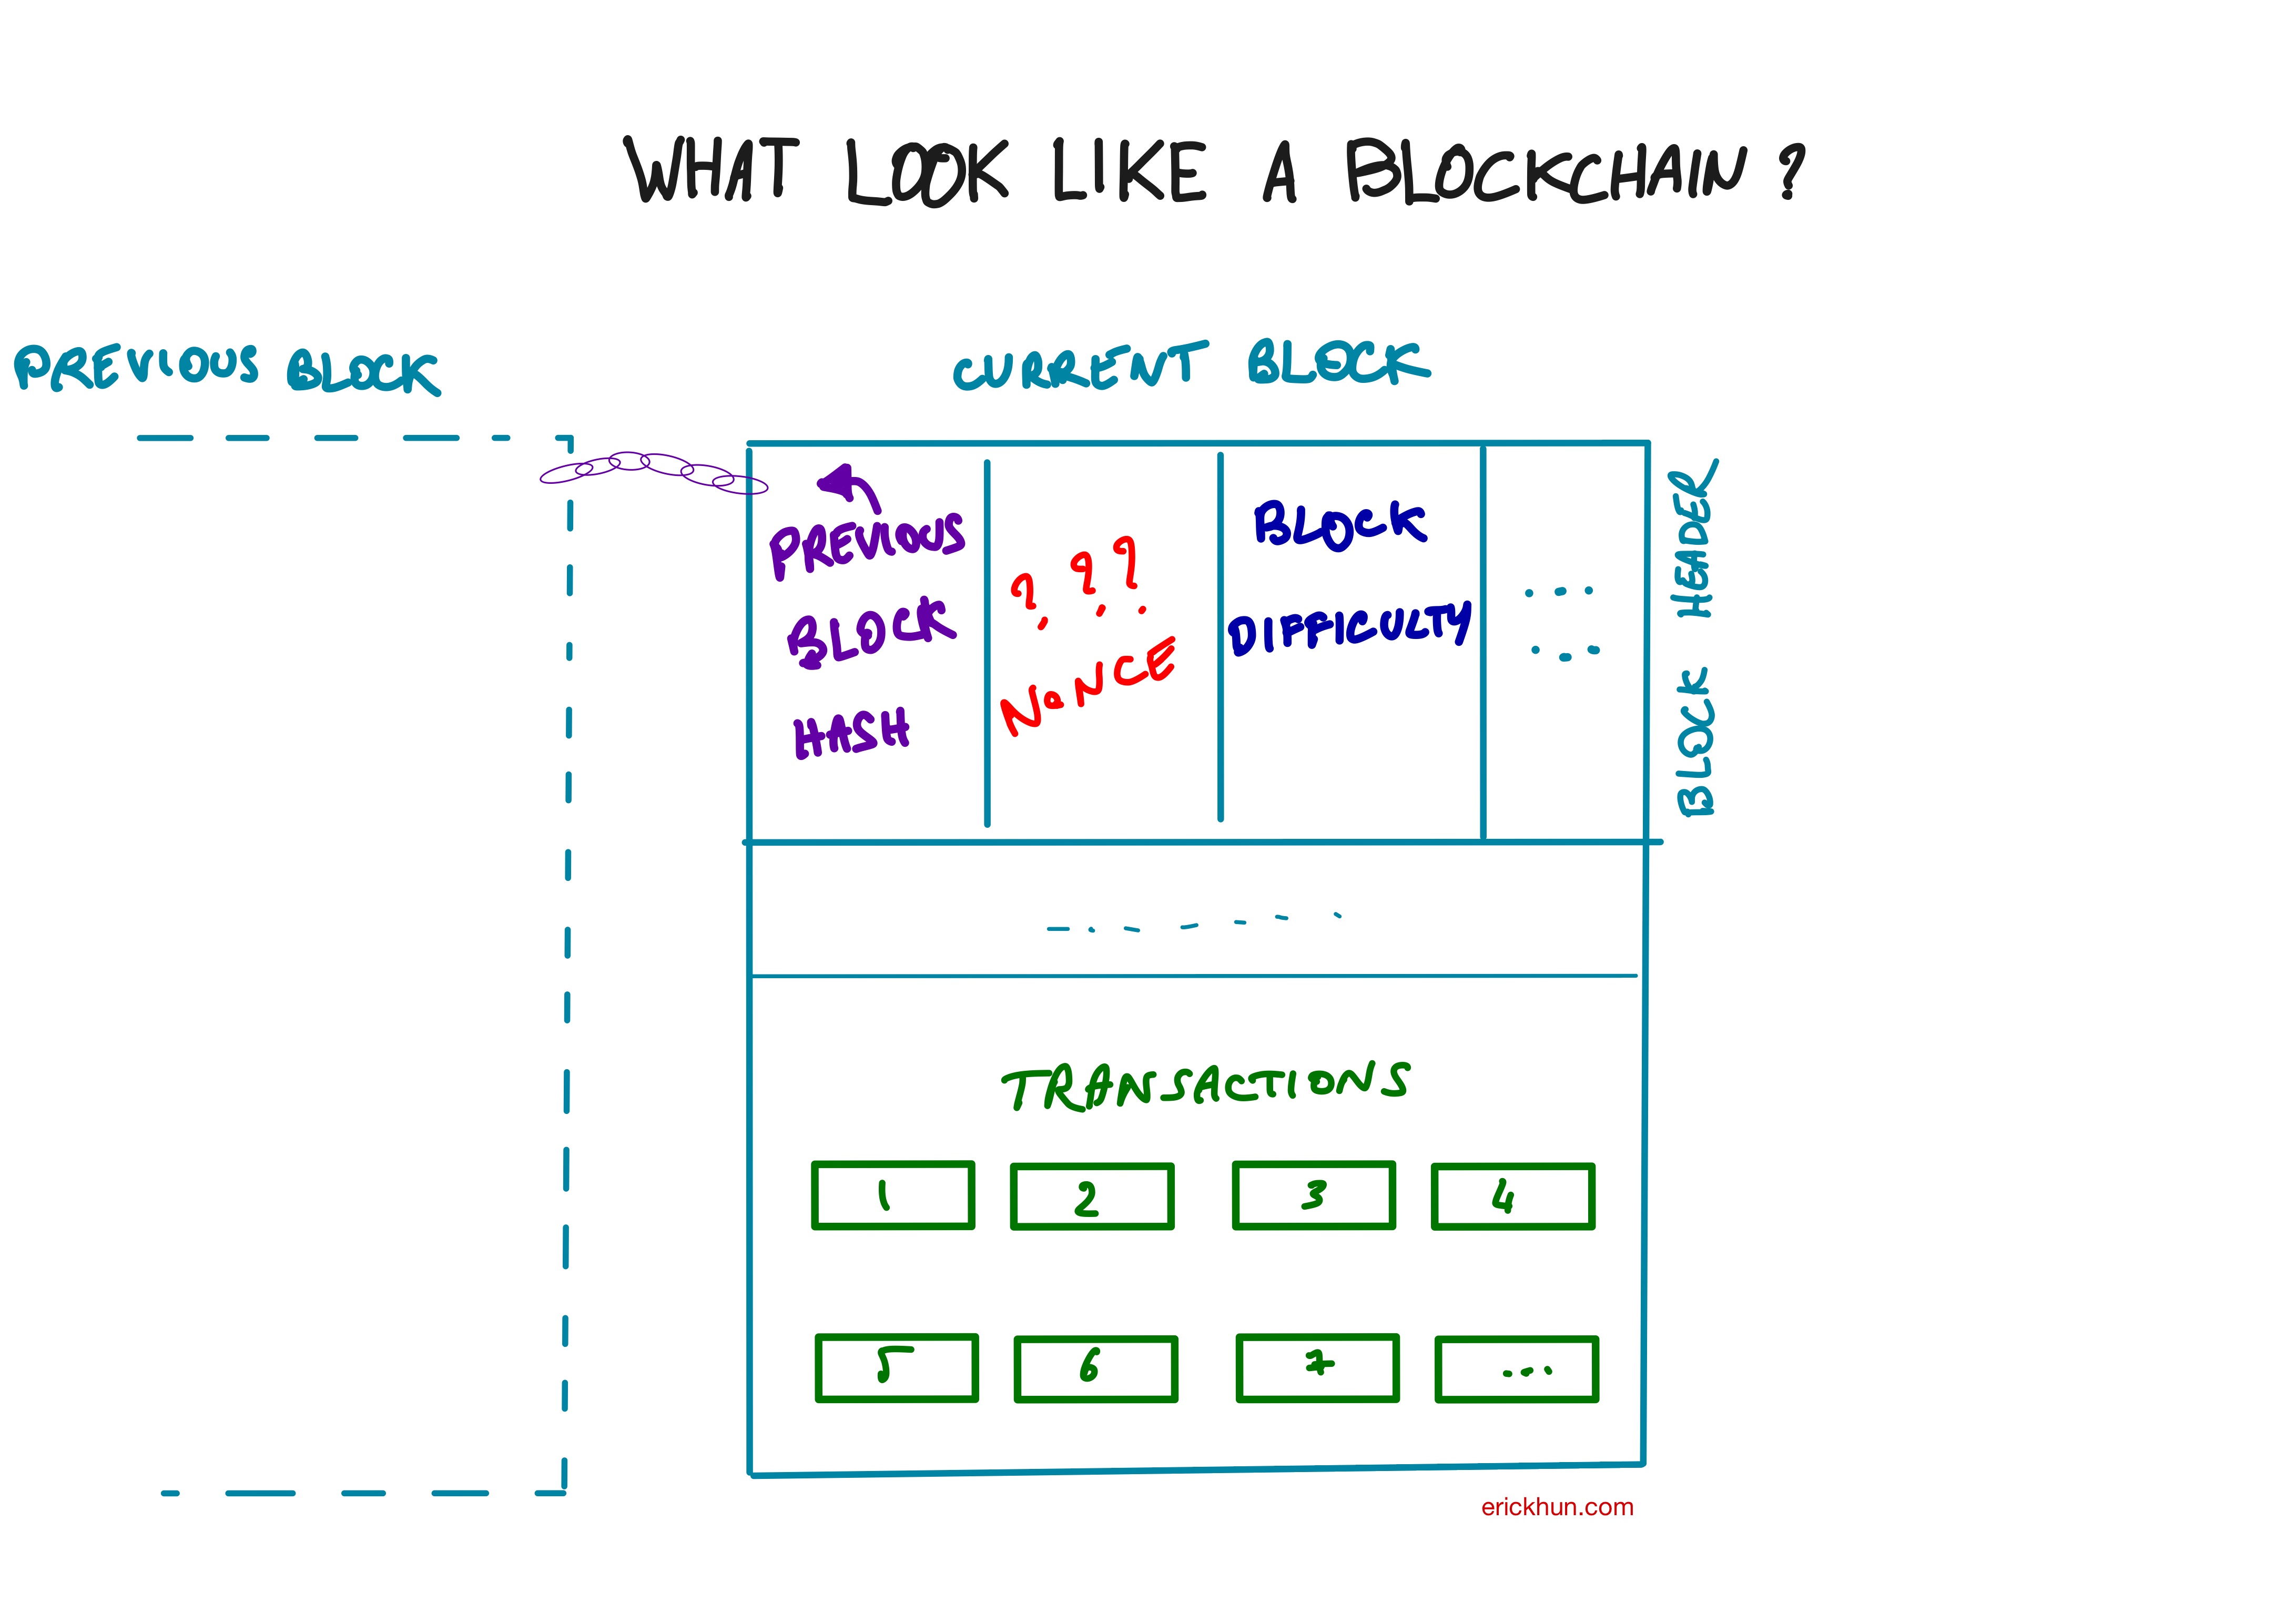 WHAT LOOK LIKE A BLOCKCHAIN ?
PREVIOUS BLOCK
CURRENT BLOCK
PREVIOUS
BLOCK
HASH
? ? ?
NONCE
BLOCK
DIFFICULTY
... ...
BLOCK HEADER
TRANSACTIONS
1 2 3 4
5 6 7 ...
erickhun.com